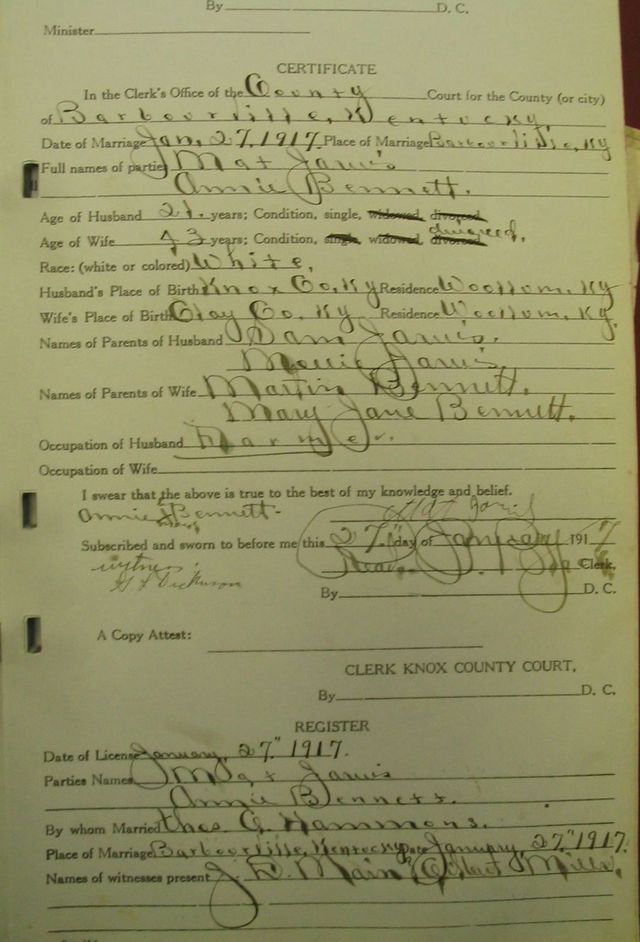 By D. C.
Minister
CERTIFICATE
In the Clerk's Office of the County Court for the County (or city)
of Barbourville, Kentucky,
Date of Marriage Jan, 27, 1917. Place of Marriage Barbourville, Ky
Full names of parties Mat Jarvis
Annie Bennett.
Age of Husband 21. years; Condition, single, widowed, divorced
Age of Wife 43 years; Condition, single, widowed, divorced divorced,
Race: (white or colored) White,
Husband's Place of Birth Knox Co, Ky Residence Woollum, Ky
Wife's Place of Birth Clay Co, Ky Residence Woollum, Ky,
Names of Parents of Husband Sam Jarvis.
Mollie Jarvis,
Names of Parents of Wife Martin Bennett.
Mary Jane Bennett.
Occupation of Husband Farmer.
Occupation of Wife
I swear that the above is true to the best of my knowledge and belief.
Annie Bennett Mat Jarvis
Subscribed and sworn to before me this 27" day of January 1917
witness Clerk,
Dickinson By D. C.
A Copy Attest:
CLERK KNOX COUNTY COURT,
By D. C.
REGISTER
Date of License January, 27" 1917.
Parties Names Mat Jarvis
Annie Bennett.
By whom Married Thos G. Hammons.
Place of Marriage Barbourville, Kentucky Date January, 27" 1917.
Names of witnesses present J. D. Main, Mills.